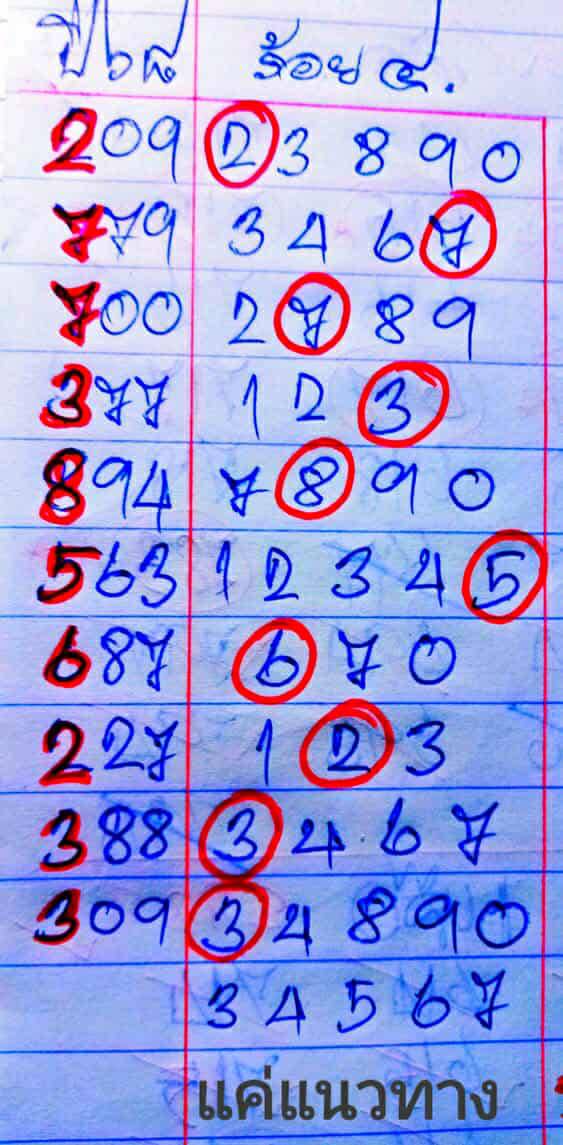 ปี 68 ร้อย ๔.
209 2 3 8 9 0
779 3 4 6 7
700 2 7 8 9
377 1 2 3
894 7 8 9 0
563 1 2 3 4 5
687 6 7 0
227 1 2 3
388 3 4 6 7
309 3 4 8 9 0
3 4 5 6 7
แค่แนวทาง